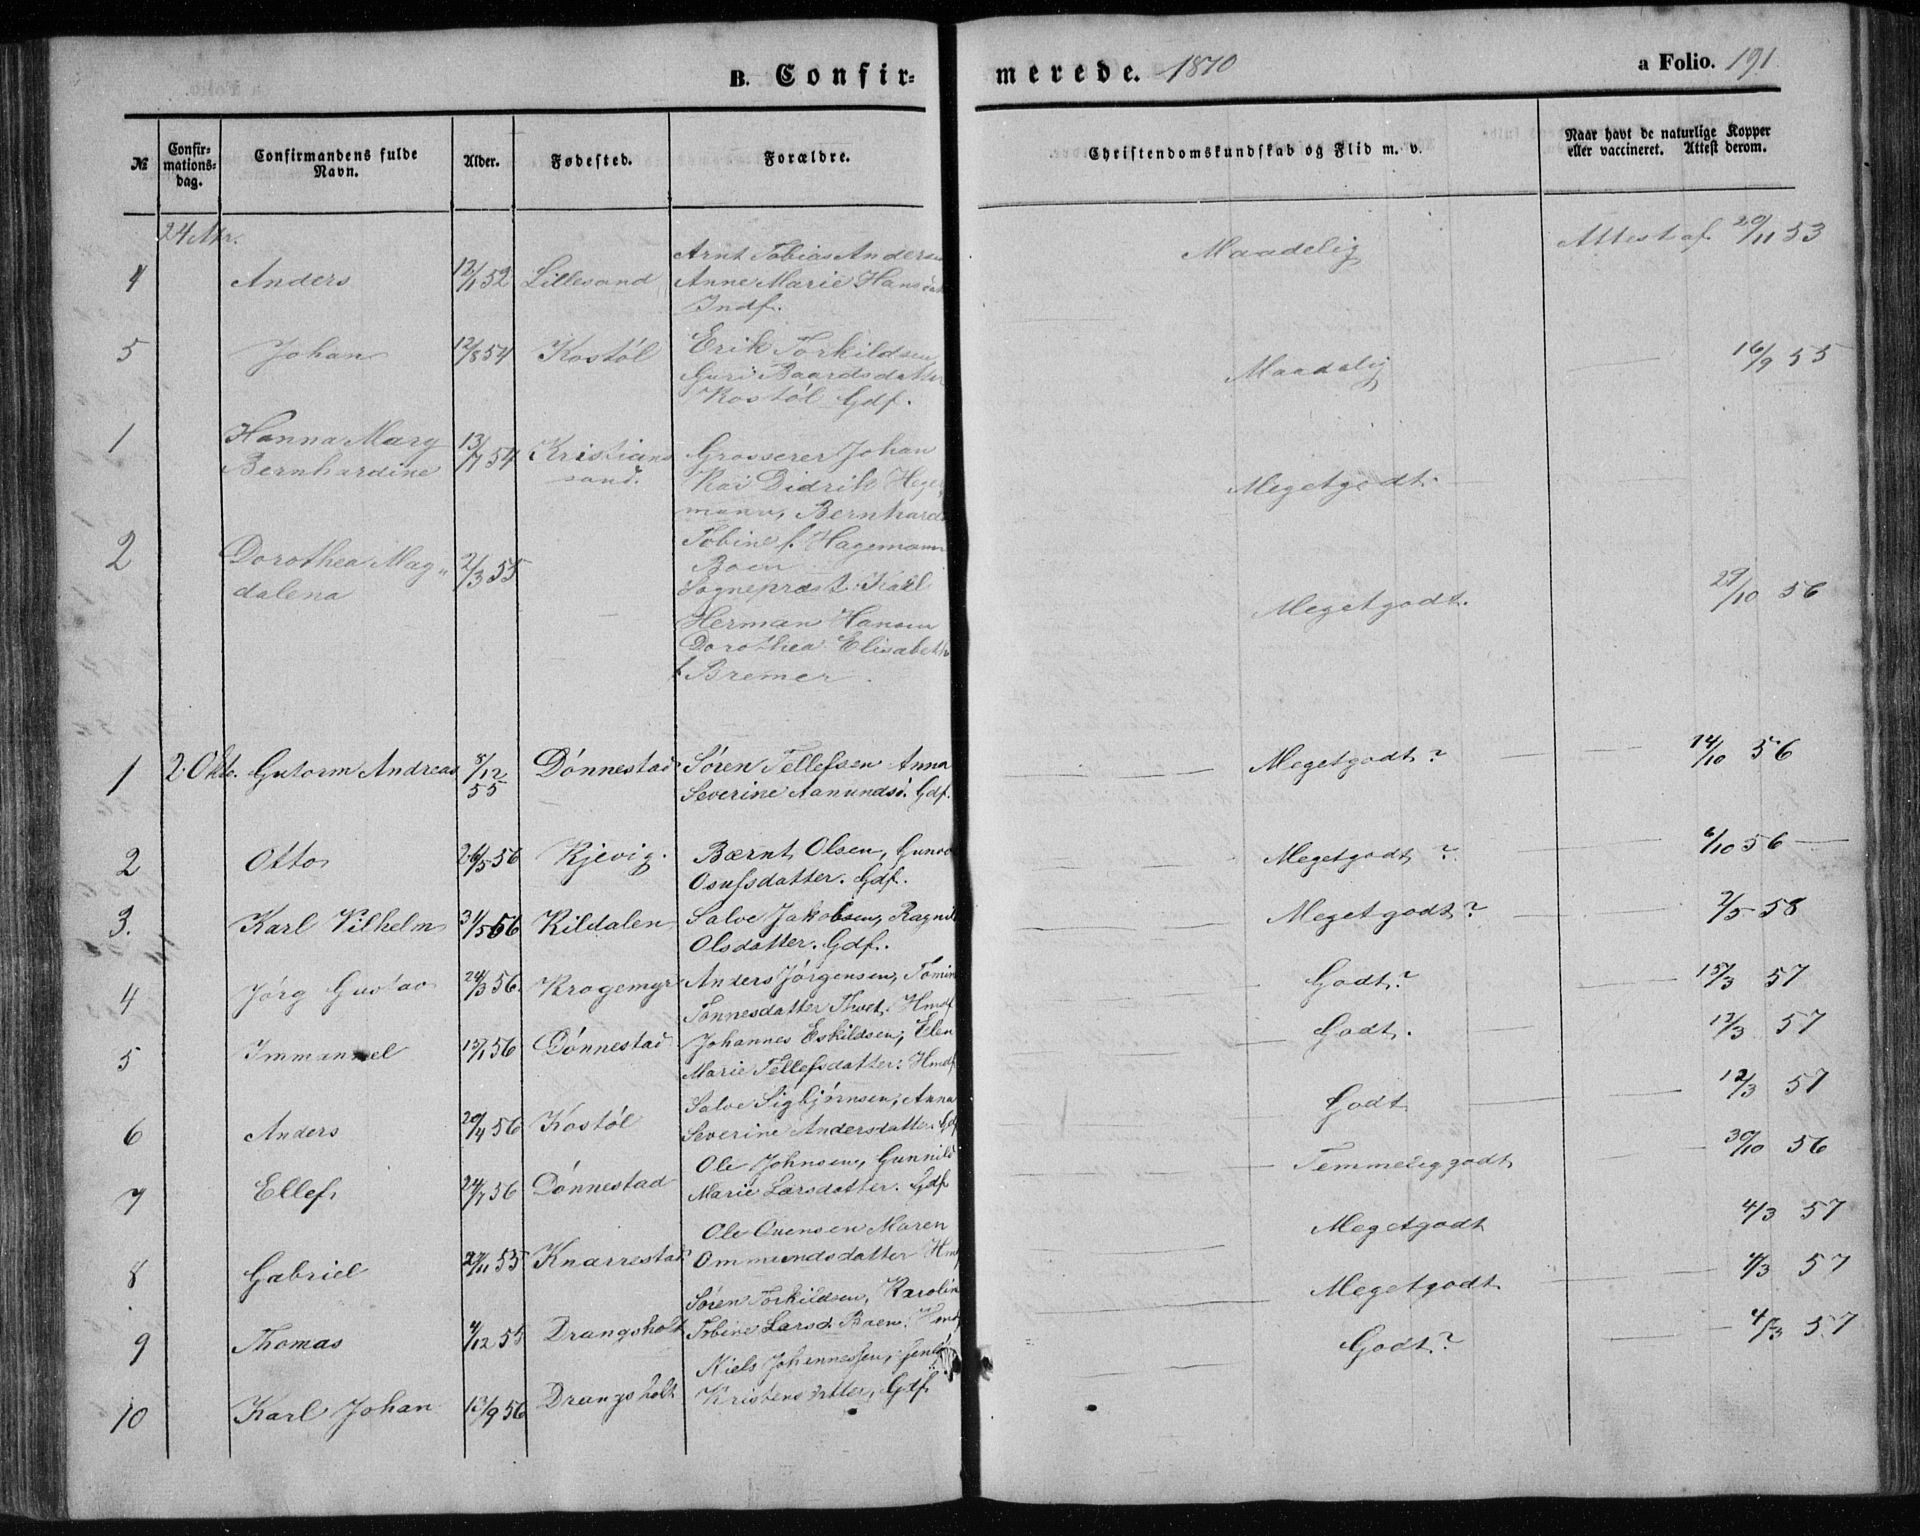 B. Confirmerede. 1870 a Folio. 191
№ Confirmationsdag. Confirmandens fulde Navn. Alder. Fødested. Forældre. Christendomskundskab og Flid m. v. Naar havt de naturlige Kopper eller vaccineret. Attest derom.
24
Arnt Tobias Andersen
4 Anders 12/1 52 Lillesand Anne Marie Maadelig Attest af 20/11 53
Indf.
5 Johan 12/8 54 Kostøl Erik Torkildsen, Maadelig 16/9 55
Guri Baardsdatter
Kostøl Gdf.
1 Hanna Mary 13/7 54 Kristians Grosserer Johan Megetgodt.
Bernhardine sand. Kai Didrik
mann, Bernhard
Tobine f. Hagemann
2 Dorothea Mag- 2/3 55 Boen Megetgodt. 29/10 56
dalena Sogneprest Karl
Herman Hansen
Dorothea Elisabeth
f Bremer.
1 2. Okto. Gutorm Andreas 5/12 55 Dønnestad Søren Tellefsen Anna Megetgodt? 14/10 56
Severine Aanundsd. Gdf.
2 Otto 24/5 56 Kjevig. Bærnt Olsen, Megetgodt? 6/10 56
Osufsdatter. Gdf.
3. Karl Vilhelm 31/5 56 Kildalen Salve Jakobsen, Ragnil Megetgodt? 2/5 58
Olsdatter. Gdf.
4 Jörg Gustav 24/3 56. Kragemyr Anders Jørgensen, Tomin Godt? 15/3 57
Tønnesdatter Hmdf
5 Immanuel 15/1 56 Dønnestad Johannes Eskildsen, Elen Godt. 12/3 57
Marie Tellefsdatter. Hmdf
6 Anders 20/4 56 Kostøl Salve Sigbjørnsen, Anna Godt 12/3 57
Severine Andersdatter. Gdf
7 Ellef 24/7 56 Dønnestad Ole Johnsen, Gunnild Temmelig godt 30/10 56
Marie Larsdatter. Gdf
8 Gabriel 27/11 55 Knarrestad Ole Ouensen Maren Megetgodt 4/3 57
Ommundsdatter
9 Thomas 4/12 55 Drangsholt Søren Torkildsen, Karolin Megetgodt 4/3 57
Tobine Larsd. Boen. Hmdf
10 Karl Johan 13/9 56 Drangsholt Niels Johannessen, Godt? 4/3 57
Kristensdatter, Gdf.